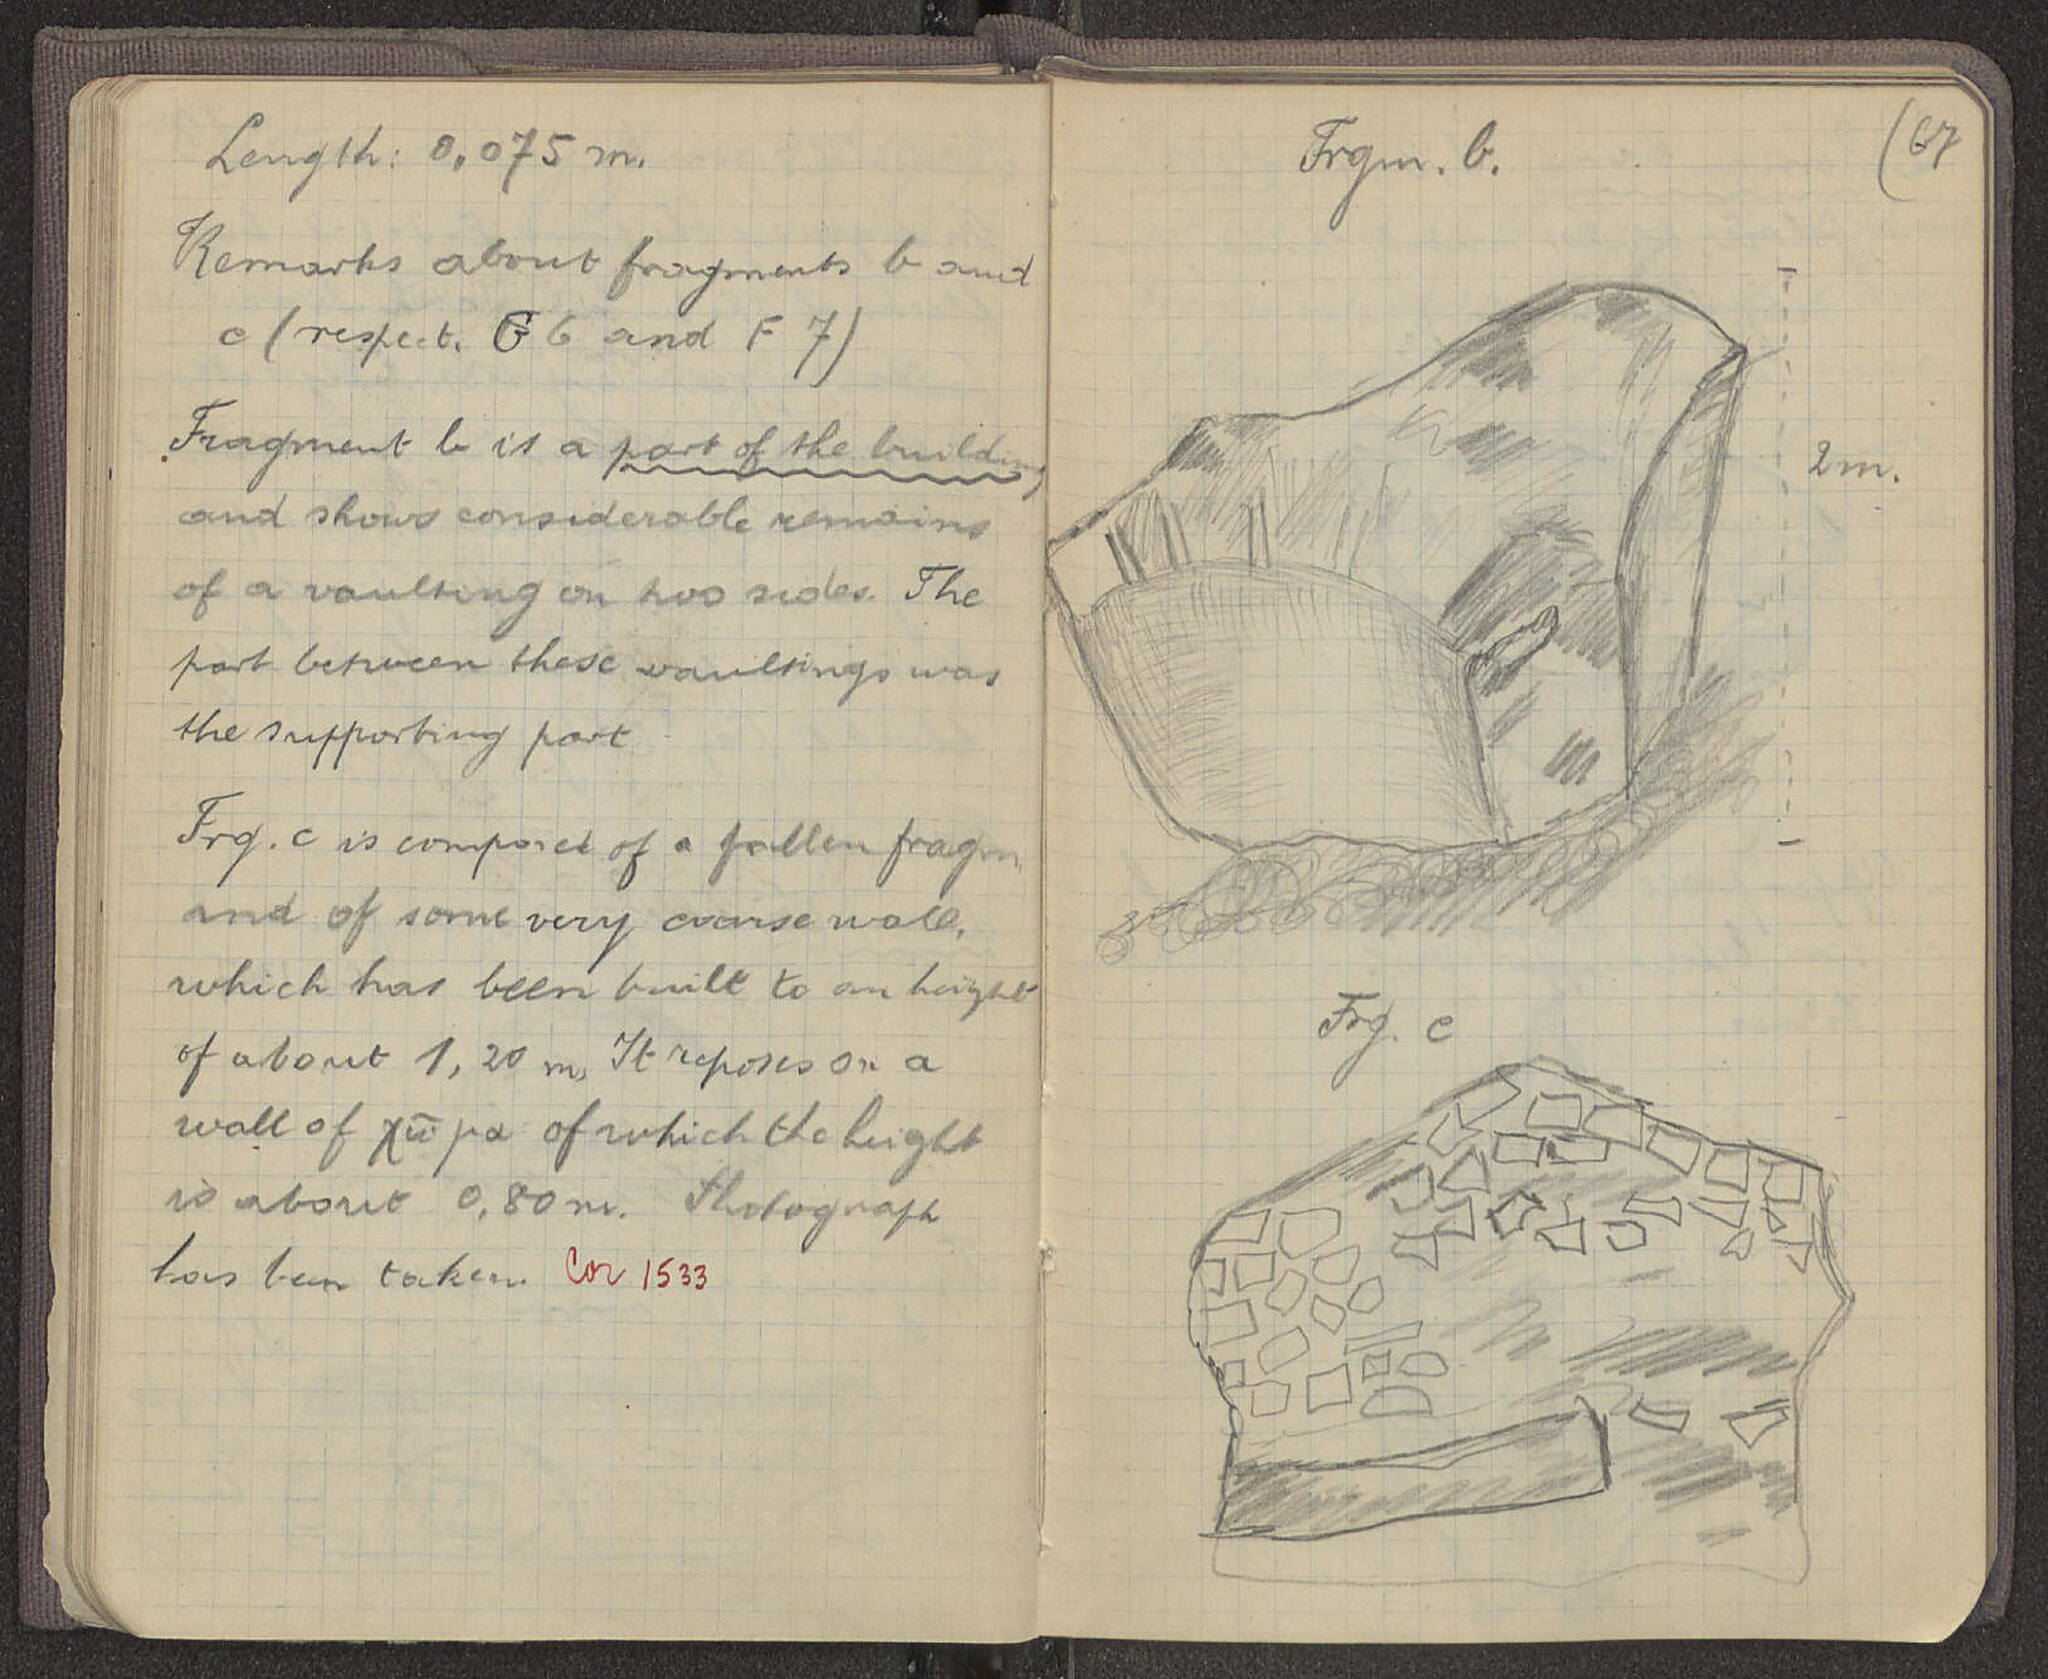 Length: 0,075 m.
Remarks about fragments b and
c (respect. G 6 and F 7)
Fragment b is a part of the building,
and shows considerable remains
of a vaulting on two sides. The
part between these vaultings was
the supporting part
Frg. c is composed of a fallen fragm.
and of some very coarse wall,
which has been built to an height
of about 1,20 m. It reposes on a
wall of χῶμα of which the height
is about 0,80 m. Photograph
has been taken. Cor 1533
(67
Frgm. b.
2 m.
Frg. c